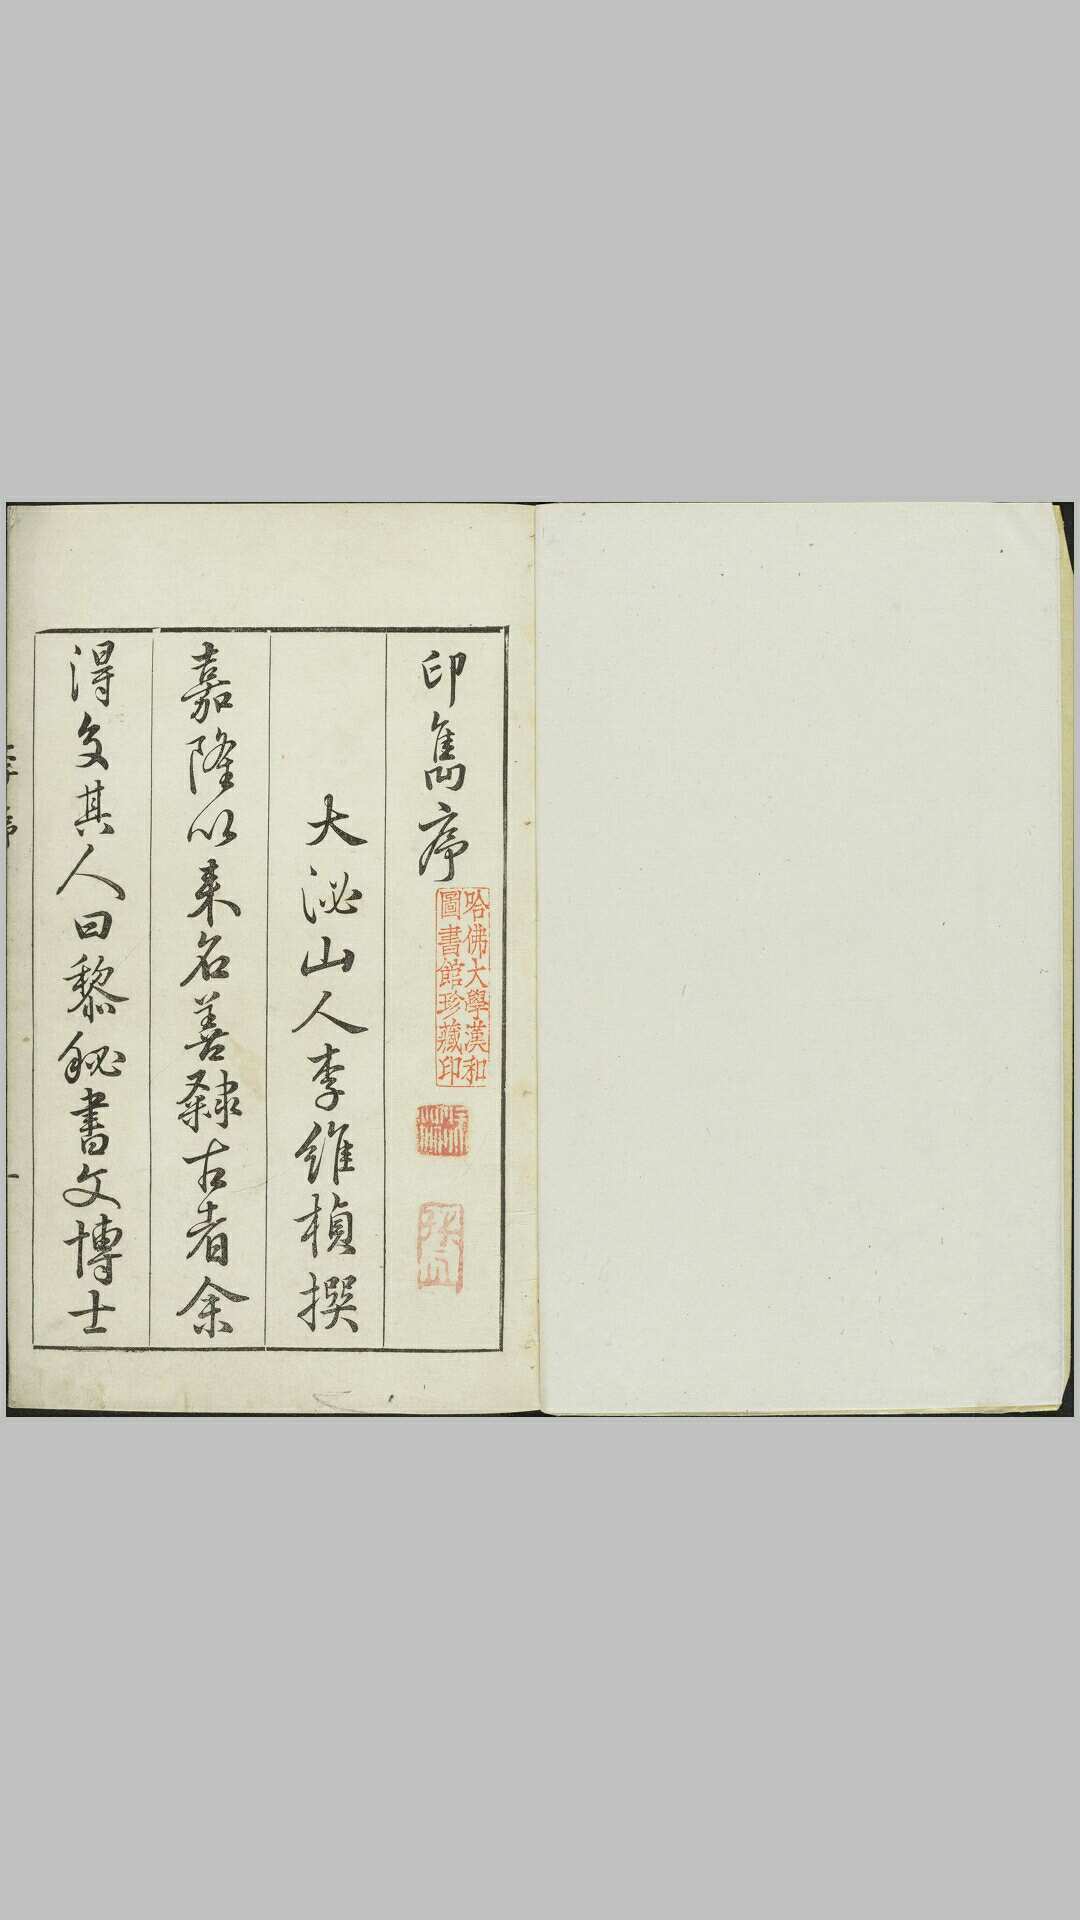 印雋序
哈佛大學漢和
圖書館珍藏印
大泌山人李維楨撰
嘉隆以来名善隸古者余
得交其人曰黎秘書文博士